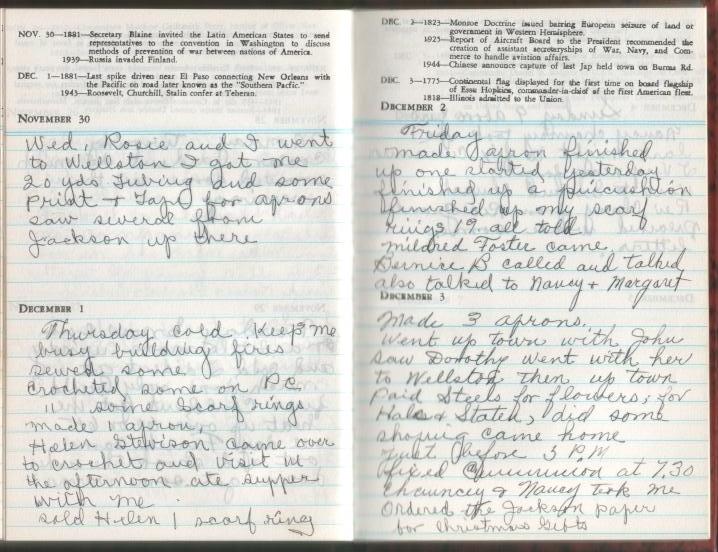 NOV. 30—1881—Secretary Blaine invited the Latin American States to send
representatives to the convention in Washington to discuss
methods of prevention of war between nations of America.
1939—Russia invaded Finland.
DEC. 1—1881—Last spike driven near El Paso connecting New Orleans with
the Pacific on road later known as the "Southern Pacfic."
1943—Roosevelt, Churchill, Stalin confer at Teheran.
NOVEMBER 30
Wed, Rosie and I went
to Wellston I got me
20 yds Tubing and some
Print + Tape for aprons
saw several from
Jackson up there
DECEMBER 1
Thursday cold. Keep me
busy building fires
sewed some,
crocheted some on P.C.
" some scarf rings
made 1 apron,
Helen Stevison came over
to crochet and visit in
the afternoon ate supper
with me.
sold Helen 1 scarf ring
DEC. 2—1823—Monroe Doctrine issued barring European seizure of land or
government in Western Hemisphere.
1925—Report of Aircraft Board to the President recommended the
creation of assistant secretaryships of War, Navy, and Com-
merce to handle aviation affairs.
1944—Chinese announce capture of last Jap held town on Burma Rd.
DEC. 3—1775—Continental flag displayed for the first time on board flagship
of Esau Hopkins, commander-in-chief of the first American fleet.
1818—Illinois admitted to the Union.
DECEMBER 2
Friday
made apron finished
up one started yesterday
finished up a pincushion
finished up my scarf
rings 19 all told
mildred Foster came.
Bernice B called and talked
also talked to Nancy + Margaret
DECEMBER 3
Made 3 aprons.
Went up town with John
saw Dorothy went with her
to Wellston then up town
Paid Steels for flowers; for
Hale & Staten, did some
shoping came home
Just before 3 P.M
fixed Communion at 7.30
Chauncey & Nancy took me
Ordered the Jackson paper
for Christmas Gifts